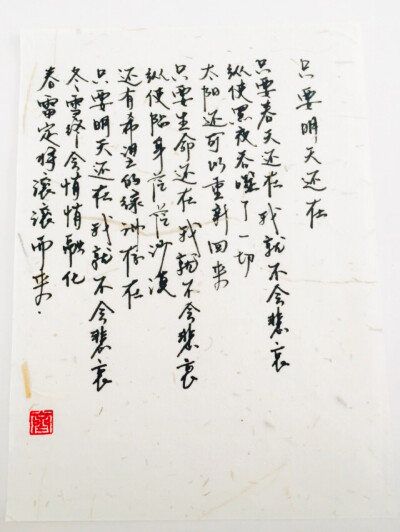 只要明天还在
只要春天还在我就不会悲哀
纵使黑夜吞噬了一切
太阳还可以重新回来
只要生命还在我就不会悲哀
纵使陷身茫茫沙漠
还有希望的绿洲存在
只要明天还在我就不会悲哀
冬雪终会悄悄融化
春雷定将滚滚而来.